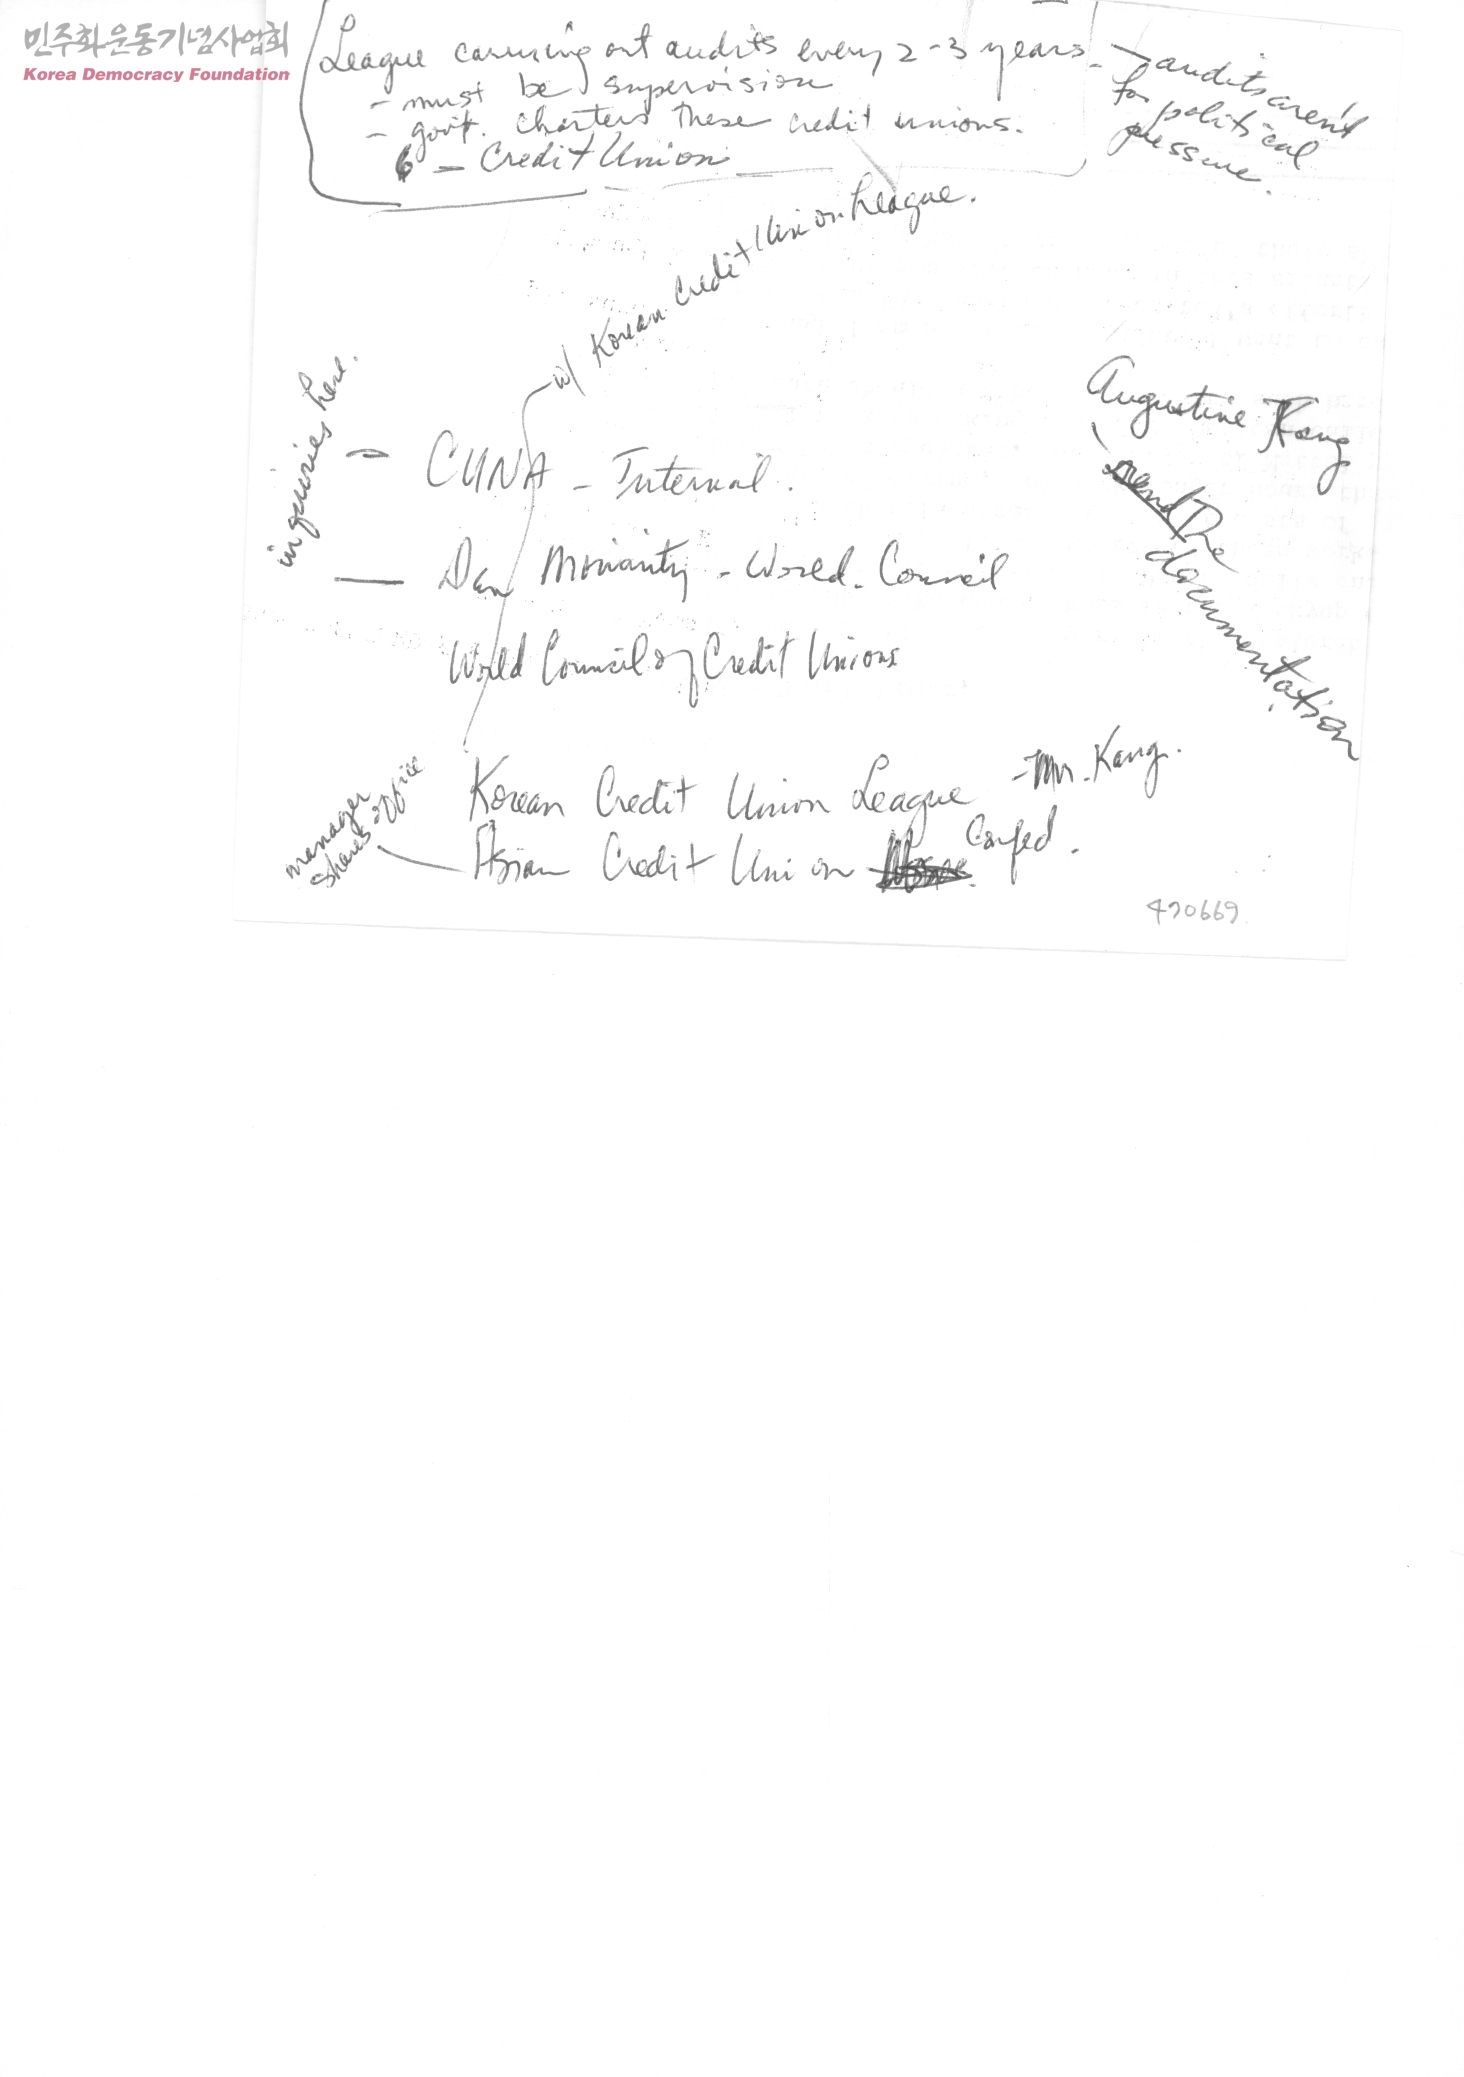 민주화운동기념사업회
Korea Democracy Foundation
League carrying out audits every 2-3 years.
- must be supervision
- gov't. charters these credit unions.
6 - Credit Union
- audits aren't
for political
pressure.
w/ Korean Credit Union League.
inquiries here.
- CUNA - Internal.
- Dan Moriarity - World Council
World Council of Credit Unions
Augustine Kang
- send The
documentation
Korean Credit Union League - Mr. Kang.
manager
shares office
Asian Credit Union Confed.
470669.